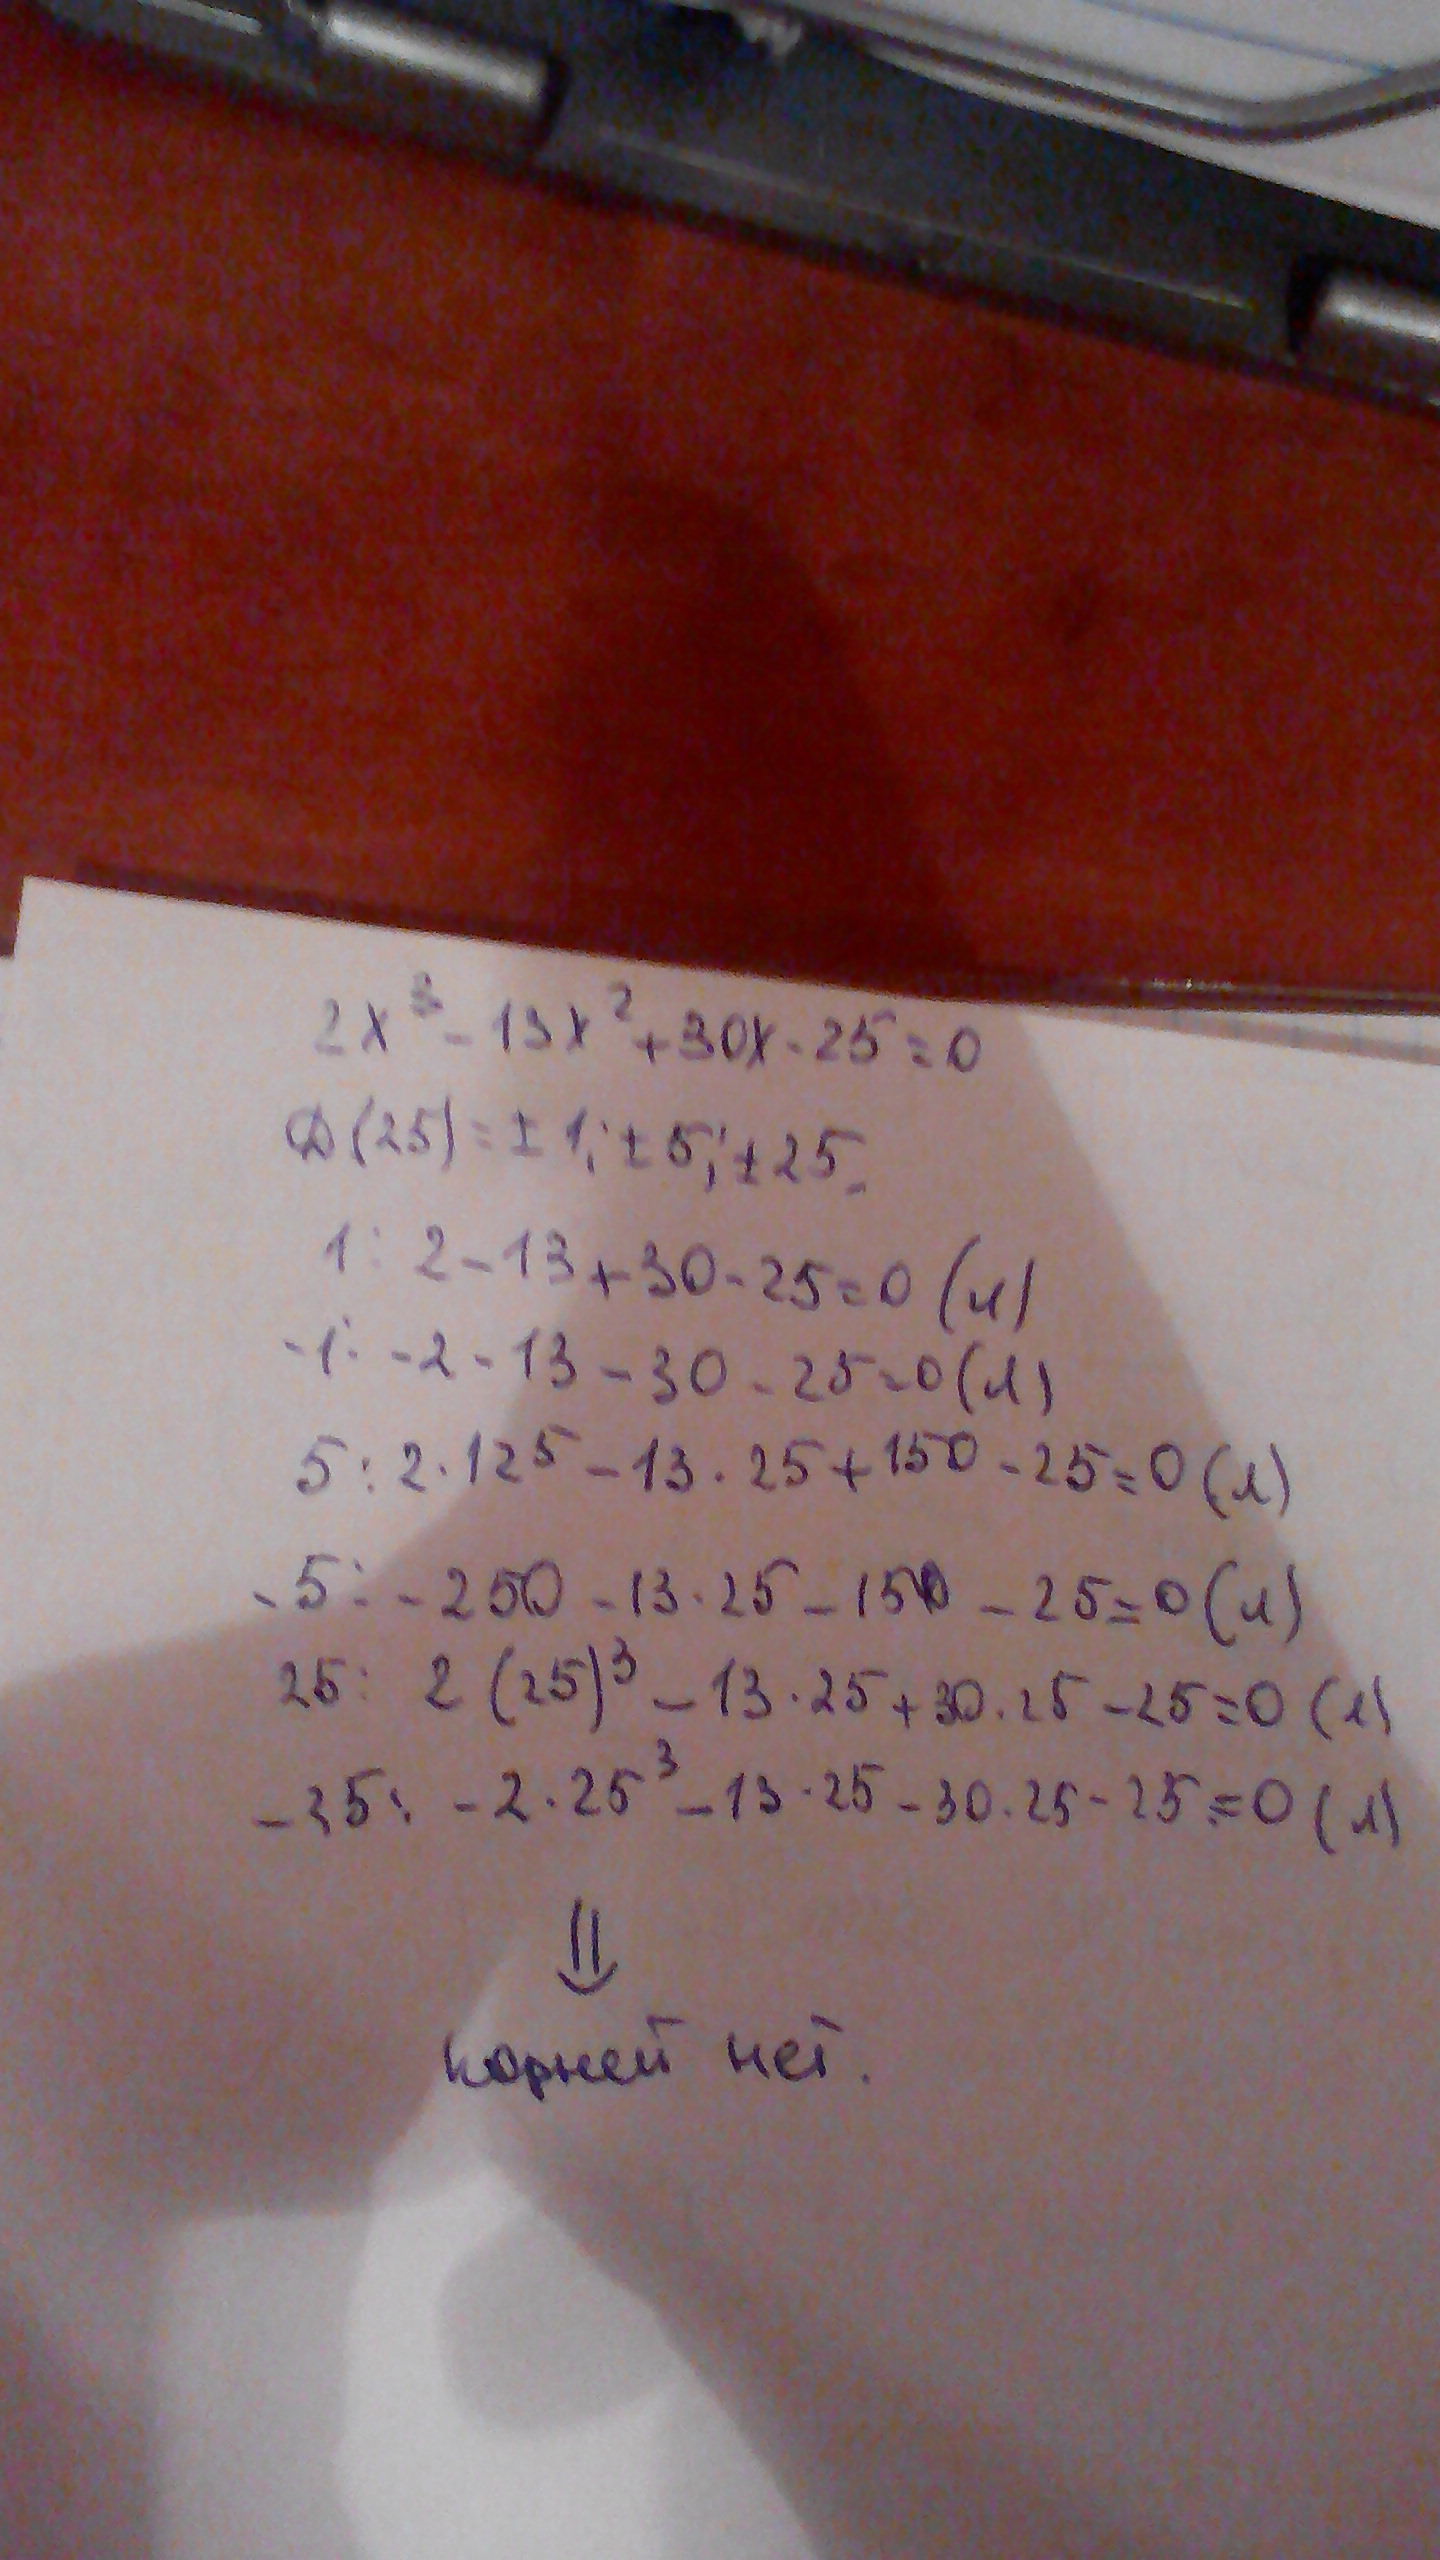 2x³ - 13x² + 30x - 25 = 0
D(25) = ± 1; ± 5; ± 25
1: 2 - 13 + 30 - 25 = 0 (л)
-1: -2 - 13 - 30 - 25 = 0 (л)
5: 2·125 - 13·25 + 150 - 25 = 0 (л)
-5: -250 - 13·25 - 150 - 25 = 0 (л)
25: 2(25)³ - 13·25 + 30·25 - 25 = 0 (л)
-25: -2·25³ - 13·25 - 30·25 - 25 = 0 (л)
⇓
корней нет.